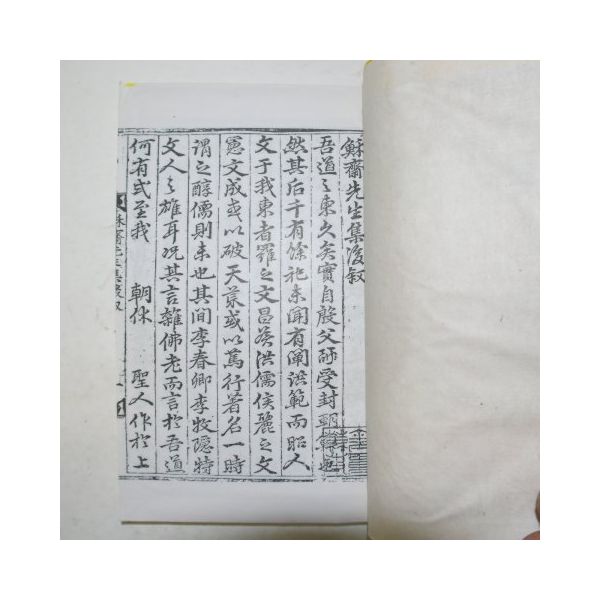 穌齋先生集後叙
吾道之東久矣實自殷父師受封朝鮮
然其后千有餘祀未聞有闡洪範而昭人
文于我東者羅之文昌侯洪儒侯麗之文
憲文成或以破天荒或以篤行著名一時
謂之醇儒則未也其間李春卿李牧隱特
文人之雄耳況其言雜佛老而言於吾道
何有或至我 朝休 聖人作於上